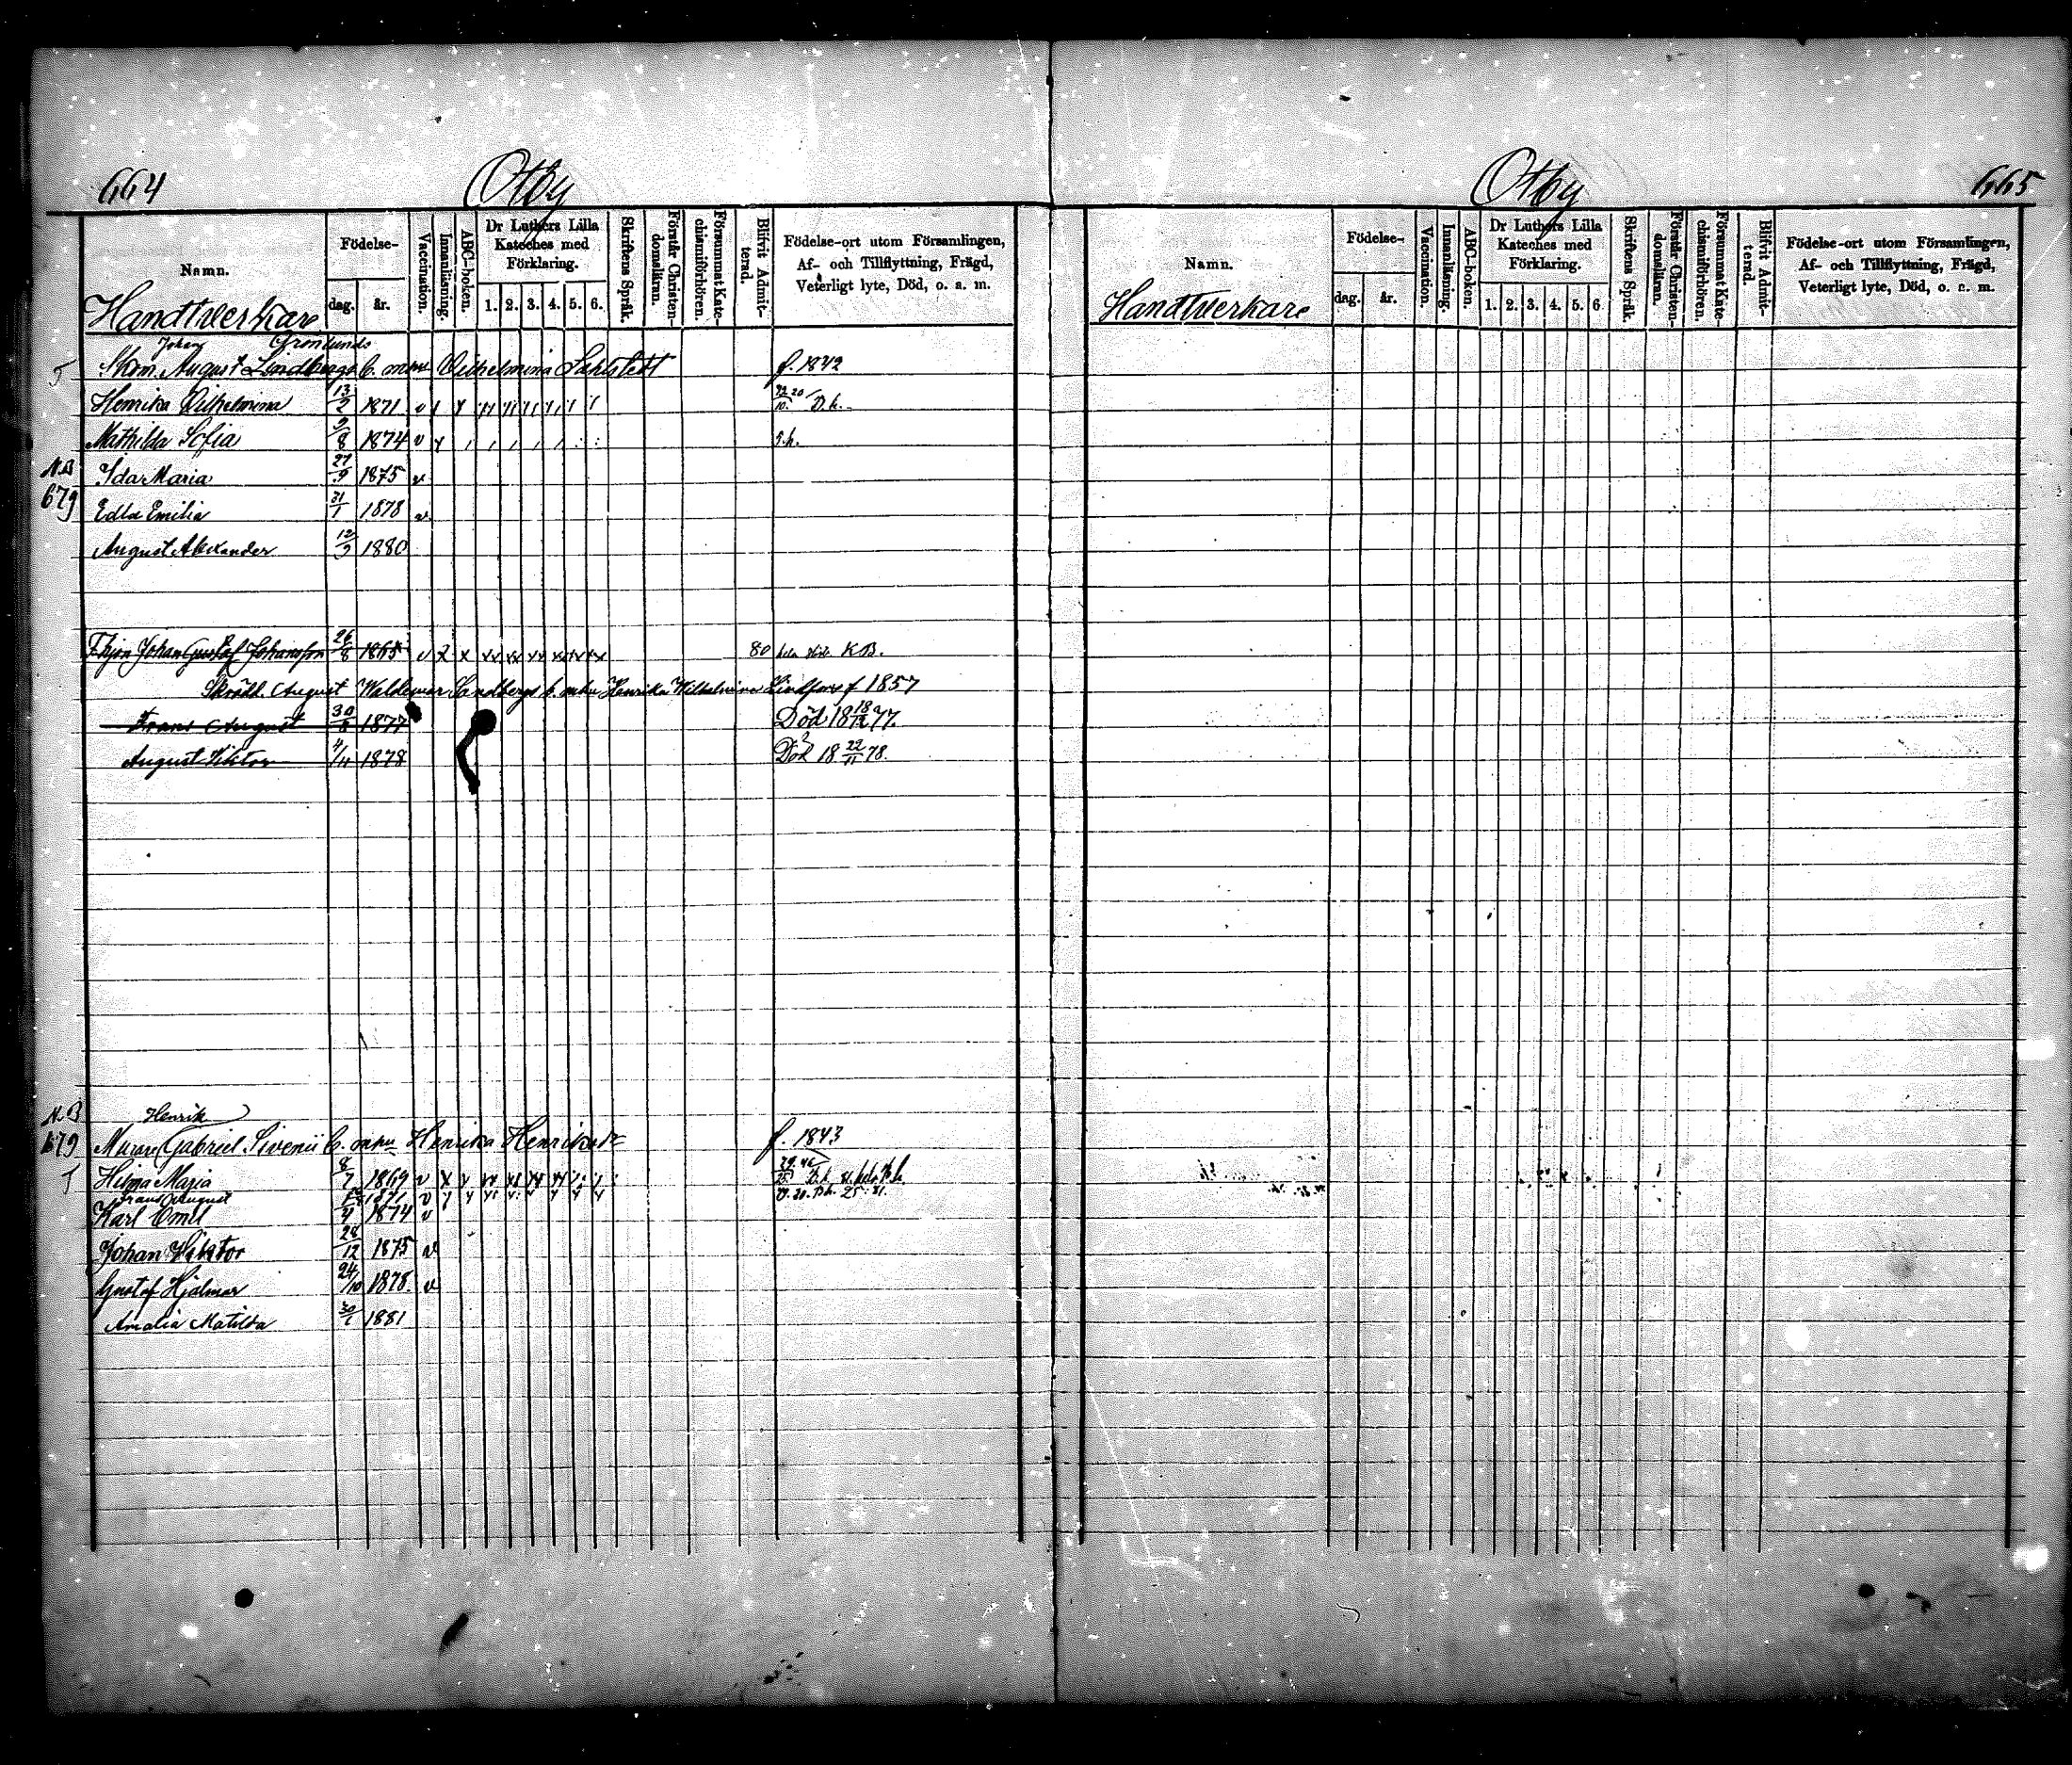 664
Otby
Namn.
Födelse-
dag.
år.
Vaccination.
Innanläsning.
ABC-boken.
Dr Luthers Lilla Kateches med Förklaring.
1. 2. 3. 4. 5. 6.
Skriftens Språk.
Förstår Christendomsläran.
Försummat Katechismiförhören.
Blifvit Admitterad.
Födelse-ort utom Församlingen,
Af- och Tillflyttning, Frägd,
Veterligt lyte, Död, o. s. m.
Handtverkare
Johan Grönlunds
August Lindbergs b. m hu Vilhelmina Sahlstedt f. 1842
Henrika Vilhelmina 13/2 1871 v D. h.
Mathilda Sofia 9/8 1874 v
NB
Ida Maria 27/9 1875 v
679
Edla Emilia 31/1 1878 v
August Alexander 12/9 1880
Johan Gustaf Johansson 26/8 1865 v x x xx xx xx xx xx xx 80 K.B.
Skrädd. August Waldemar Sandbergs b. m hu Henrika Wilhelmina Lindfors f 1857
Frans August 30/8 1877 Död 18 18/12 77.
August Viktor 4/11 1878 Död 18 22/11 78.
NB
Henrik
679 Murare Gabriel Sivenii b. m hu Henrika Henriksdr f. 1843
Hilma Maria 8/7 1869 v
Frans August 1871 v
Karl Emil 1874 v
Johan Viktor 28/12 1875 v
Gustaf Hjalmar 24/10 1878. v
Amalia Matilda 1881
Otby
665
Namn.
Födelse-
dag.
år.
Vaccination.
Innanläsning.
ABC-boken.
Dr Luthers Lilla Kateches med Förklaring.
1. 2. 3. 4. 5. 6
Skriftens Språk.
Förstår Christendomsläran.
Försummat Katechismiförhören.
Blifvit Admitterad.
Födelse-ort utom Församlingen,
Af- och Tillflyttning, Frägd,
Veterligt lyte, Död, o. s. m.
Handtverkare